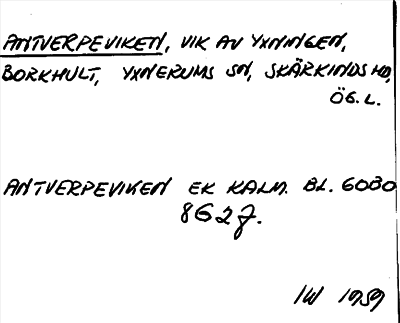 ANTVERPEVIKEN, VIK AV YXNINGEN,
BORKHULT, YXNERUMS SN, SKÄRKINDS HD,
ÖG. L.
ANTVERPEVIKEN EK KALM. BL. 6030
8G 2 J.
IW 1959